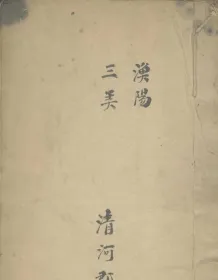 漢陽
三美
清河郡